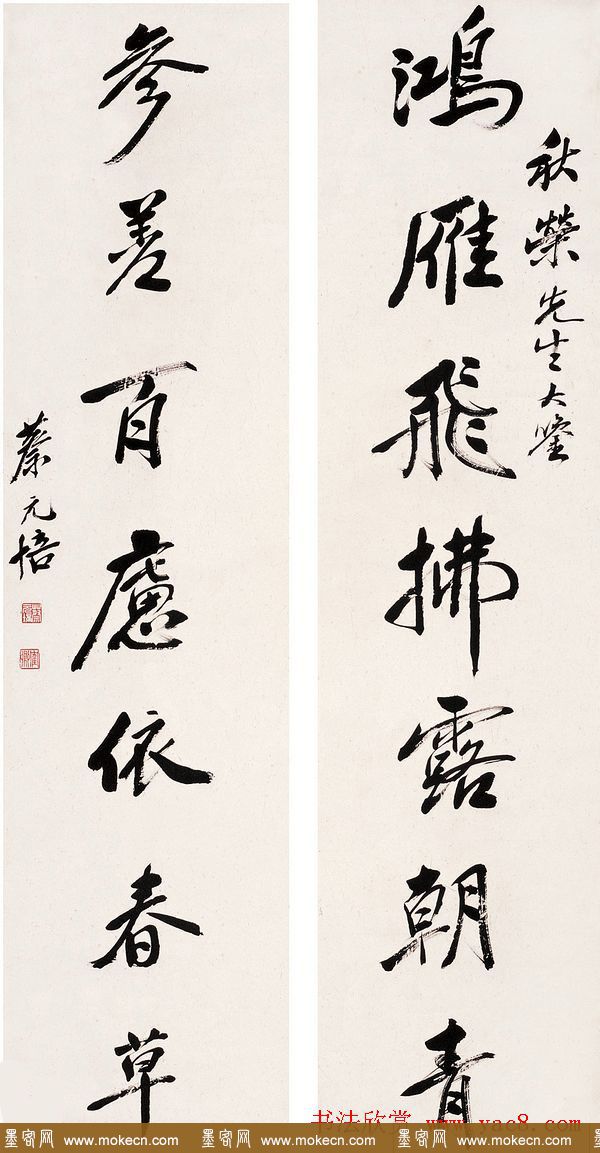 秋荣先生大鉴
鸿雁飞拂露朝青
参差百虑依春草
蔡元培
书法欣赏 www.yac8.com
墨客网 www.mokecn.com 墨客网 www.mokecn.com 墨客网 www.mokecn.com